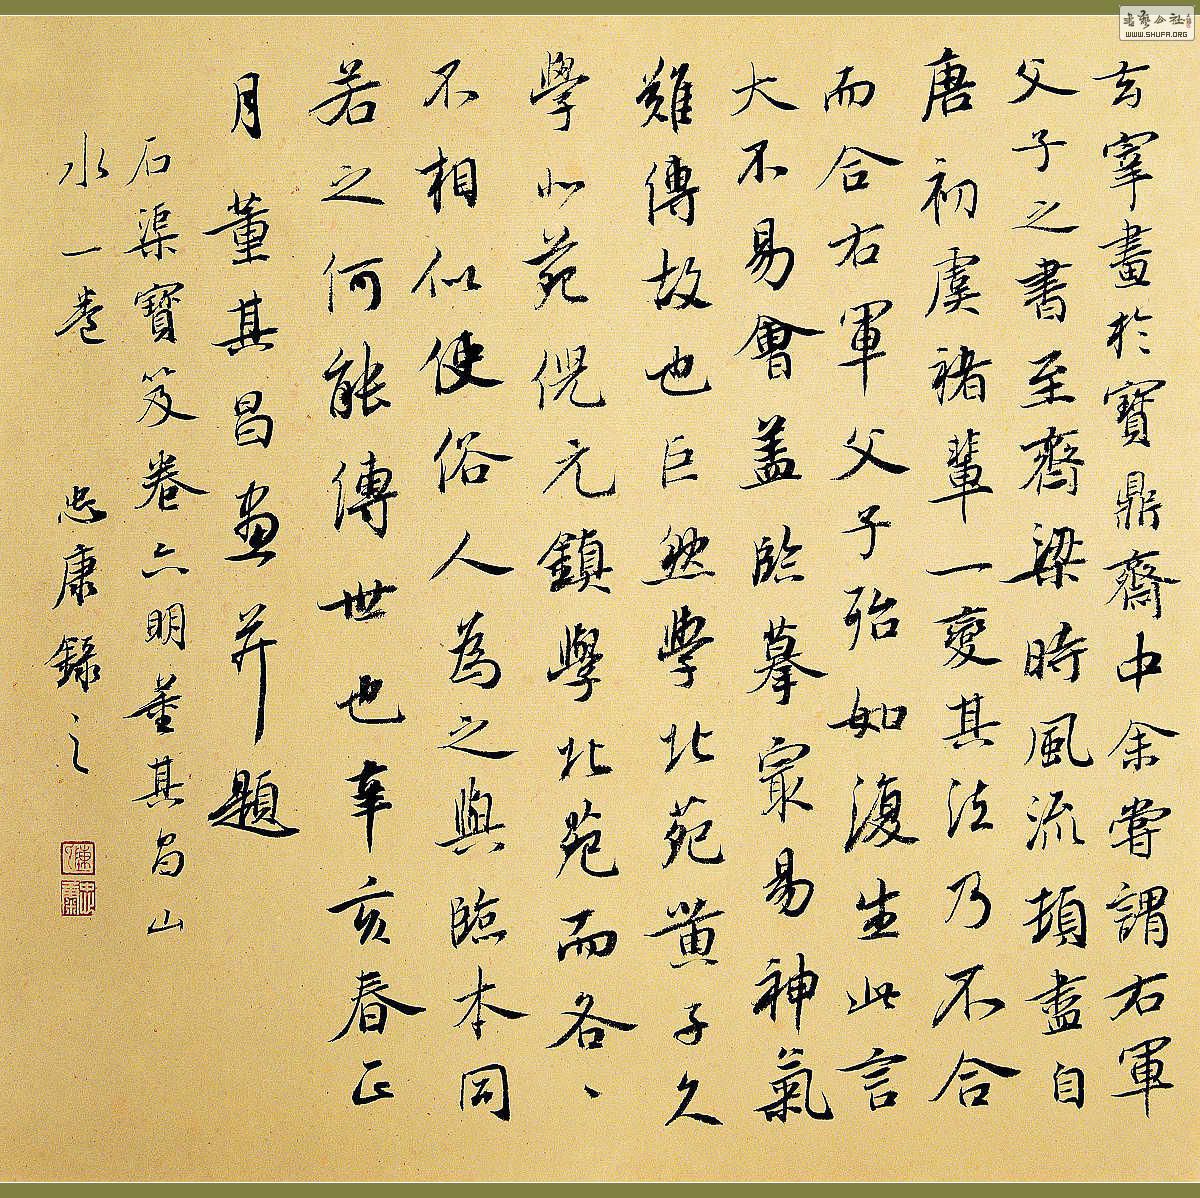 玄宰畫於寶鼎齋中余嘗謂右軍
父子之書至齊梁時風流頓盡自
唐初虞褚輩一變其法乃不合
而合右軍父子殆如復生此言
大不易會蓋臨摹最易神氣
難傳故也巨然學北苑黃子久
學北苑倪元鎮學北苑而各各
不相似使俗人為之與臨本同
若之何能傳世也辛亥春正
月 董其昌畫并題
石渠寶笈卷六明董其昌山
水一卷 忠康錄之
陳忠康
书艺公社
WWW.SHUFA.ORG